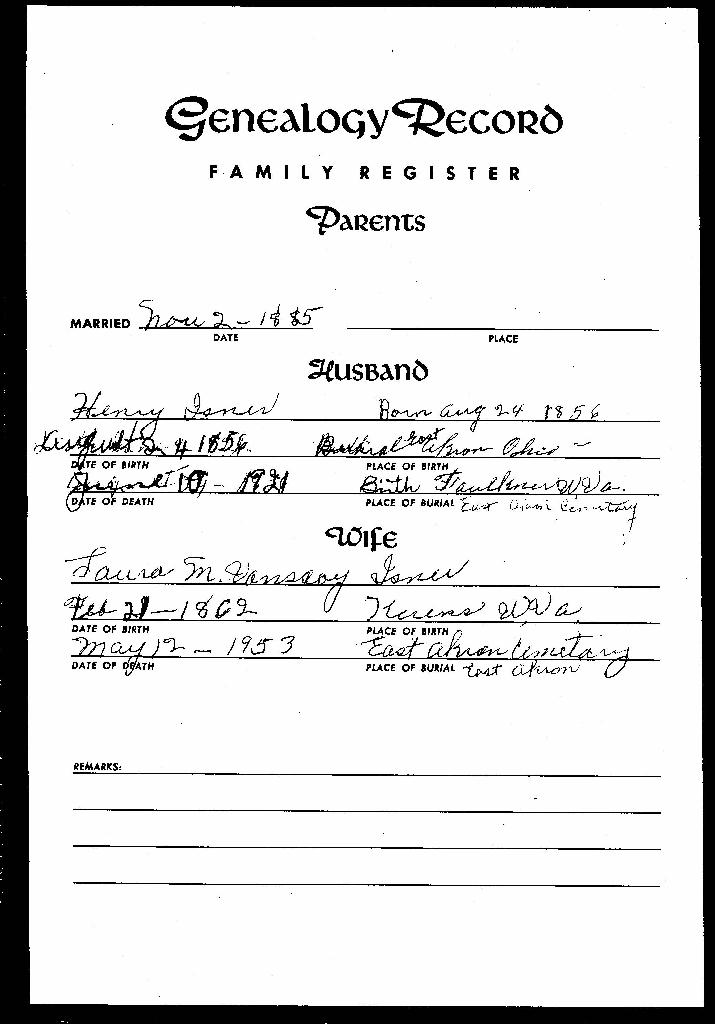 Genealogy Record
FAMILY REGISTER
Parents
MARRIED Nov 2 - 1885
DATE PLACE
Husband
Henry Isner Born Aug 24 1856
24 1856 Burial East Akron Ohio -
DATE OF BIRTH PLACE OF BIRTH
August 10 - 1921 Birth Faulkner W Va.
DATE OF DEATH PLACE OF BURIAL East Akron Cemetary
Wife
Laura M. Vanscoy Isner
Feb 21 - 1862 Kerens W Va
DATE OF BIRTH PLACE OF BIRTH
May 12 - 1953 East Akron Cemetary
DATE OF DEATH PLACE OF BURIAL East Akron
REMARKS: